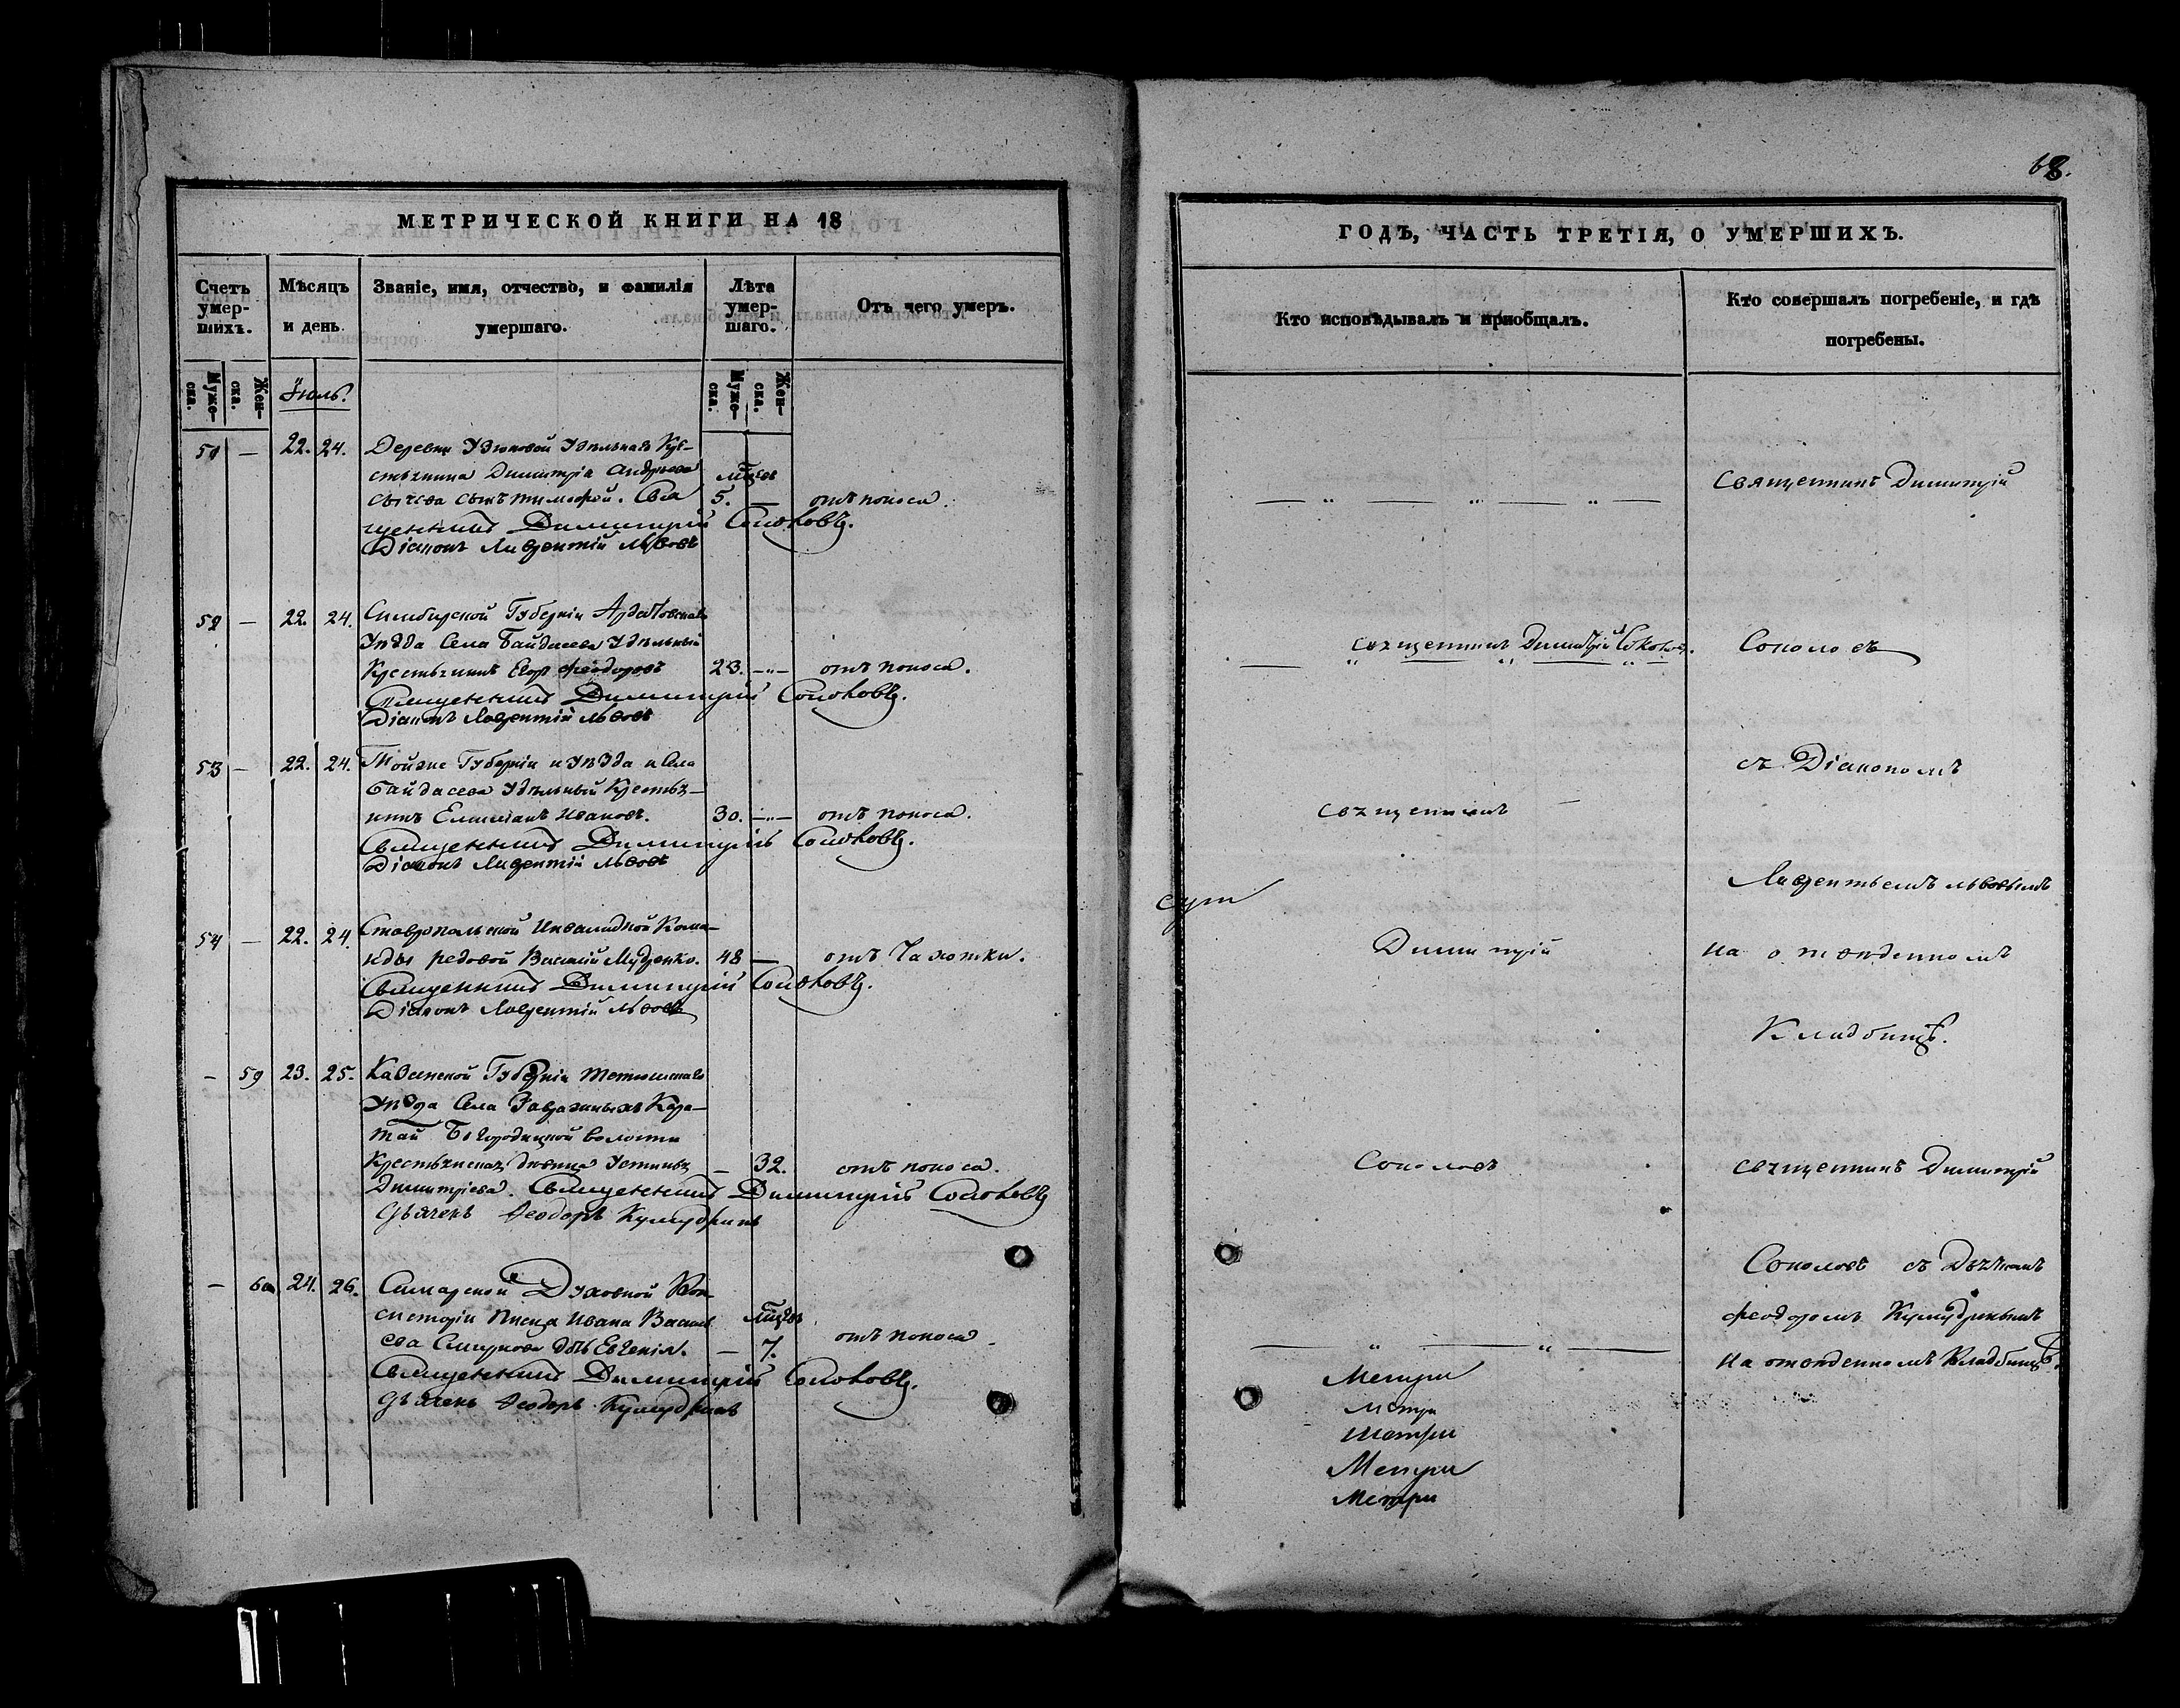 68.
МЕТРИЧЕСКОЙ КНИГИ НА 18
Счетъ умер-шихъ.
Мѣсяцъ и день.
Званіе, имя, отчество, и фамилія умершаго.
Лѣта умер-шаго.
Отъ чего умеръ.
Муже-ска.
Жен-ска.
Іюль.
Муже-ска.
Жен-ска.
51 — 22. 24. Деревни Удѣльнаго Кре-
стьянина Димитрія Андреева
сынъ Тимофей. Свя 5. — отъ поноса.
щенникъ Димитрій Соколовъ.
Діаконъ Лаврентій Львовъ
52 — 22. 24. Симбирской Губерніи Ардатовскаго
Уѣзда Села Байдасева Удѣльный
Крестьянинъ Егоръ Феодоровъ 23. —„— отъ поноса.
Священникъ Димитрій Соколовъ.
Діаконъ Лаврентій Львовъ
53 — 22. 24. Тойже Губерніи и Уѣзда и Села
Байдасева Удѣльный Крестья-
нинъ Ивановъ. 30. —„— отъ поноса.
Священникъ Димитрій Соколовъ.
Діаконъ Лаврентій Львовъ
54 — 22. 24. Ставропольской Инвалидной Кома-
нды редовой Василій Мудренко. 48 — отъ Чахотки.
Священникъ Димитрій Соколовъ.
Діаконъ Лаврентій Львовъ
— 59 23. 25. Казанской Губерніи Тетюшскаго
Уѣзда Села Кара-
тай Богородицкой волости
Крестьянская дѣвица Устинья — 32. отъ поноса.
Димитріева. Священникъ Димитрій Соколовъ
Дьячекъ Феодоръ Кумудринъ
— 60 24. 26. Самарской Духовной Кон-
систоріи Писца Ивана Василь
ева Смирнова дочь Евгенія. — 7. отъ поноса
Священникъ Димитрій Соколовъ.
Дьячекъ Феодоръ Кумудринъ
ГОДЪ, ЧАСТЬ ТРЕТІЯ, О УМЕРШИХЪ.
Кто исповѣдывалъ и приобщалъ.
Кто совершалъ погребеніе, и гдѣ погребены.
Священникъ Димитрій
священникъ Димитрій Соколовъ.
Соколовъ
съ Діакономъ
священникъ
Лаврентьемъ Львовымъ
Димитрій
на отведенномъ
Кладбищѣ.
Соколовъ
священникъ Димитрій
Соколовъ съ Дьячкомъ
Феодоромъ Кумудринымъ
на отведенномъ Кладбищѣ.
Метри
Метри
Метри
Метри
Метри